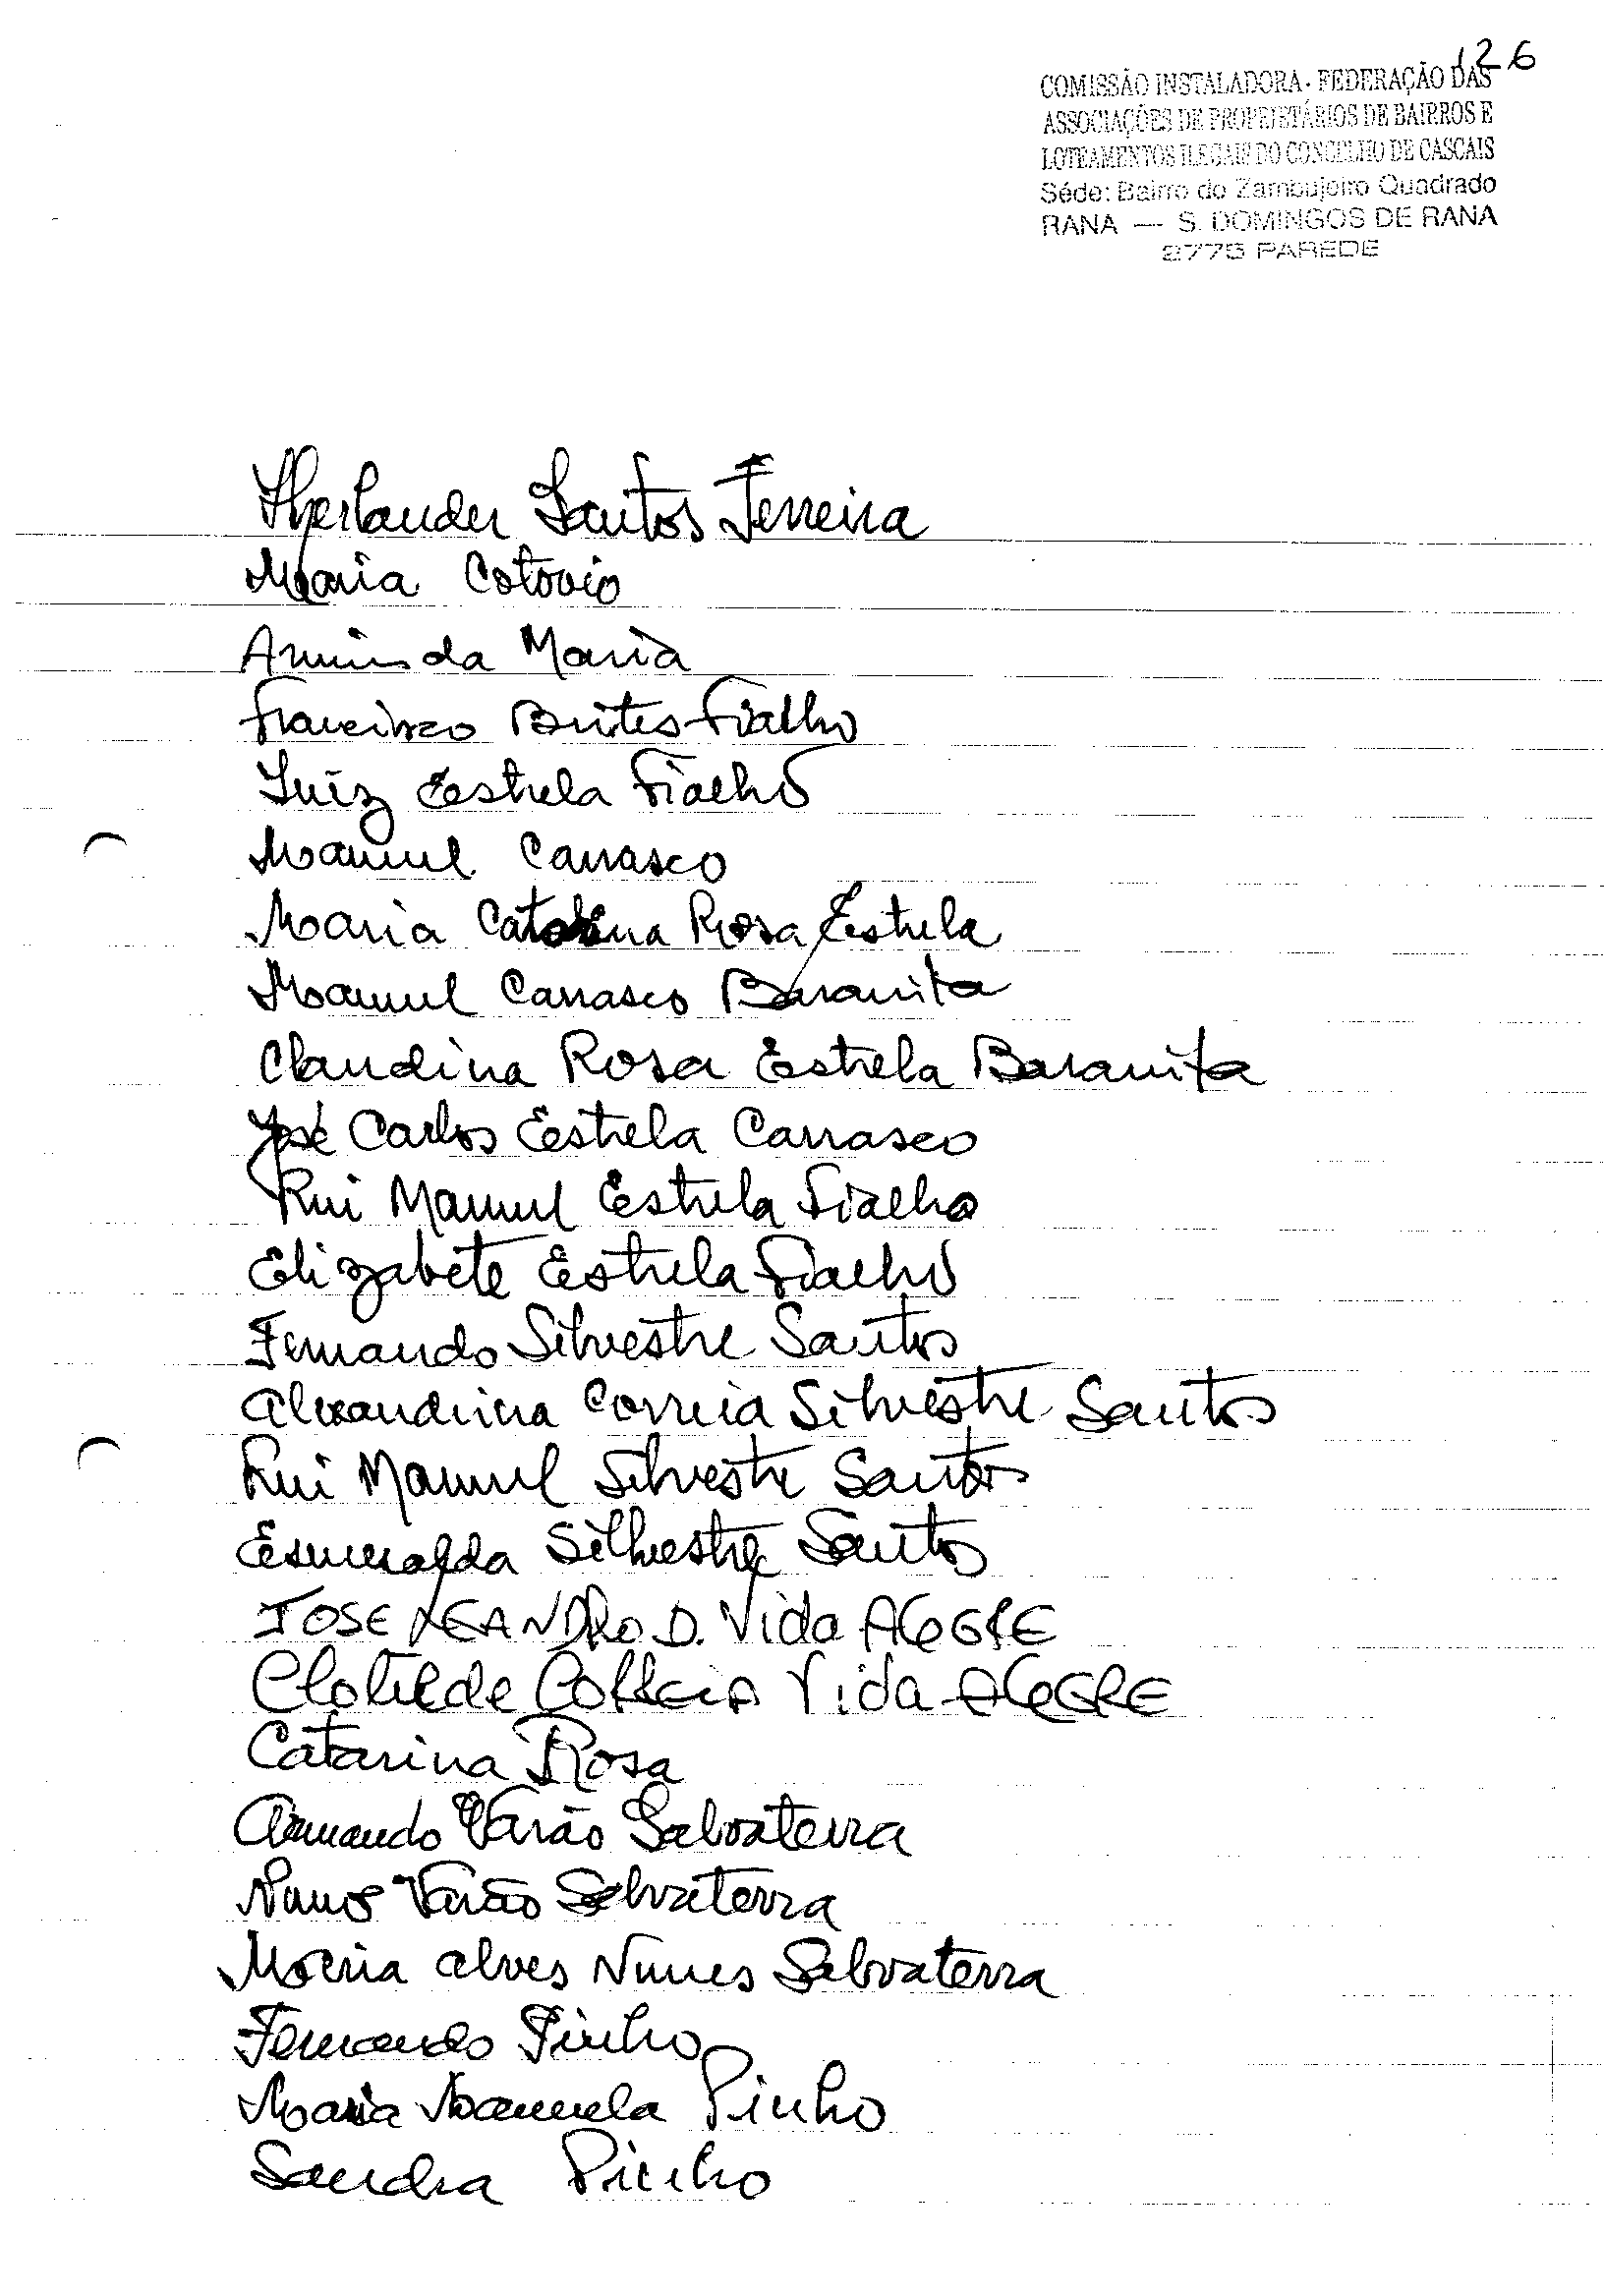 126
COMISSÃO INSTALADORA - FEDERAÇÃO DAS
ASSOCIAÇÕES DE PROPRIETÁRIOS DE BAIRROS E
LOTEAMENTOS ILEGAIS DO CONCELHO DE CASCAIS
Séde: Bairro do Zambujeiro Quadrado
RANA — S. DOMINGOS DE RANA
2775 PAREDE
Herlander Santos Ferreira
Maria Cotovio
Arminda Maria
Francisco Brites Fialho
Luíz Estrela Fialho
Manuel Carrasco
Maria Catarina Rosa Estrela
Manuel Carrasco Baranita
Claudina Rosa Estrela Baranita
José Carlos Estrela Carrasco
Rui Manuel Estrela Fialho
Elizabete Estrela Fialho
Fernando Silvestre Santos
Alexandrina Correia Silvestre Santos
Rui Manuel Silvestre Santos
Esmeralda Silvestre Santos
JOSE LEANDRO D. Vida AleGRE
Clotilde CORReiA Vida AleGRE
Catarina Rosa
Armando Varão Salvaterra
Nuno Varão Salvaterra
Maria Alves Nunes Salvaterra
Fernando Pinho
Maria Manuela Pinho
Sandra Pinho